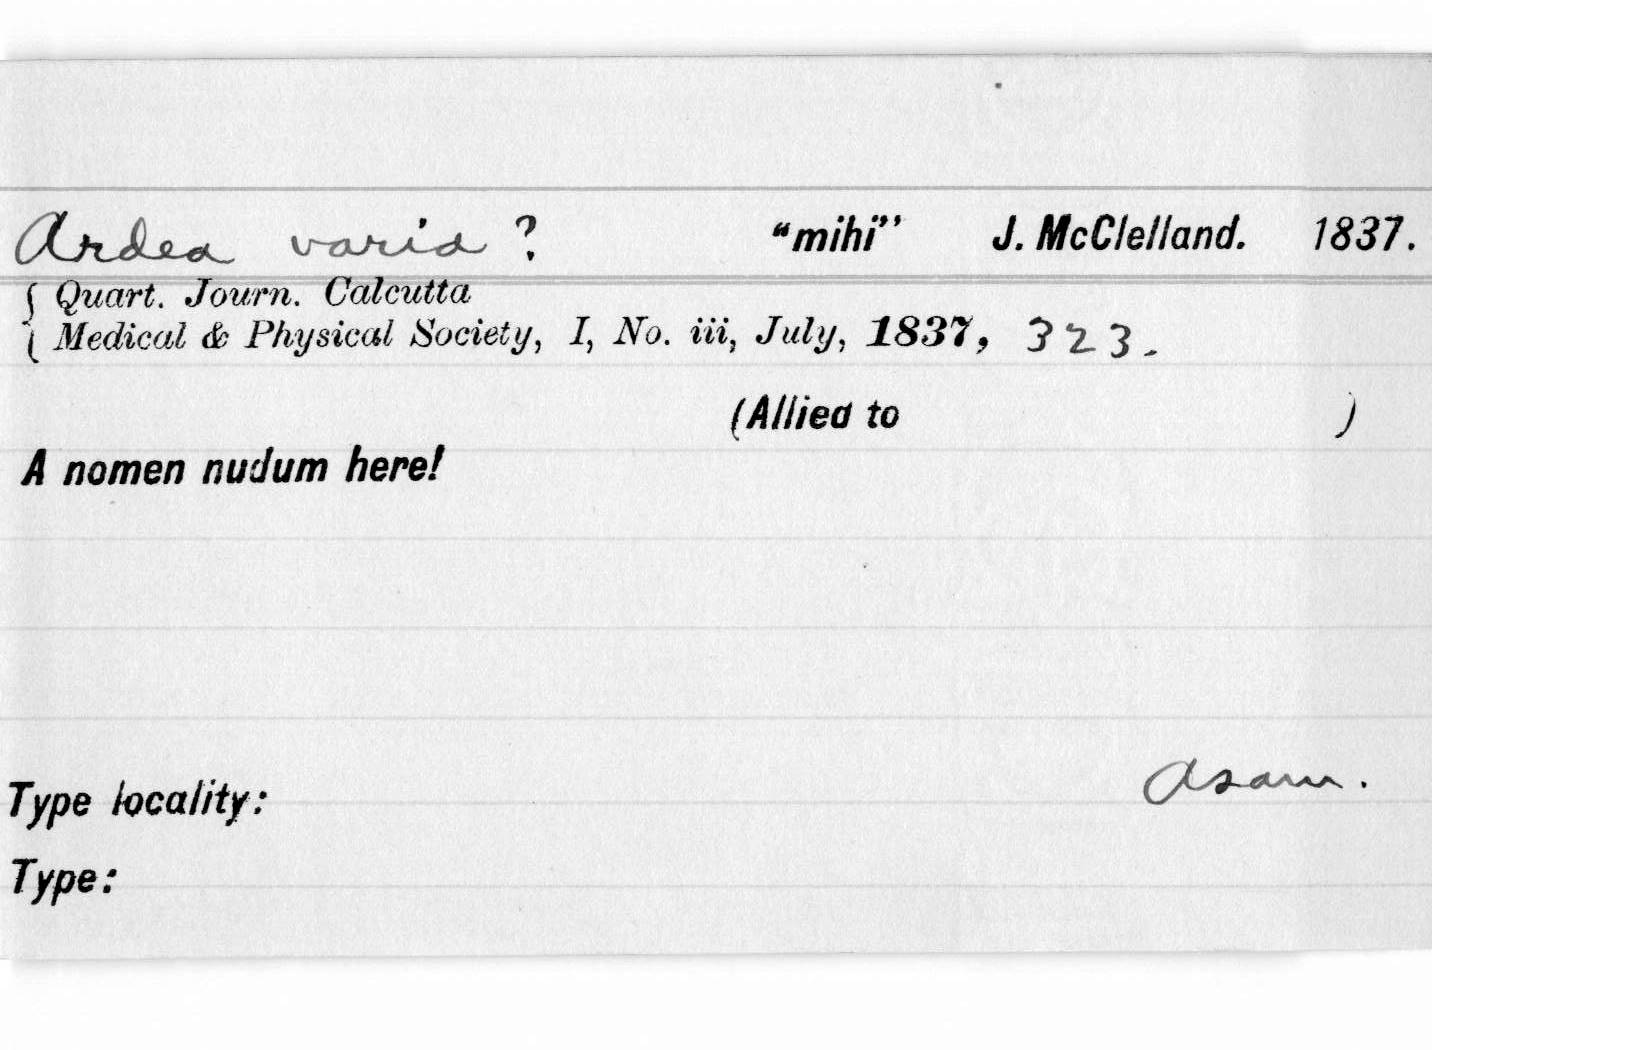 Ardea varia ? "mihi" J. McClelland. 1837.
Quart. Journ. Calcutta
Medical & Physical Society, I, No. iii, July, 1837, 323.
(Allied to )
A nomen nudum here!
Type locality: Asam.
Type: